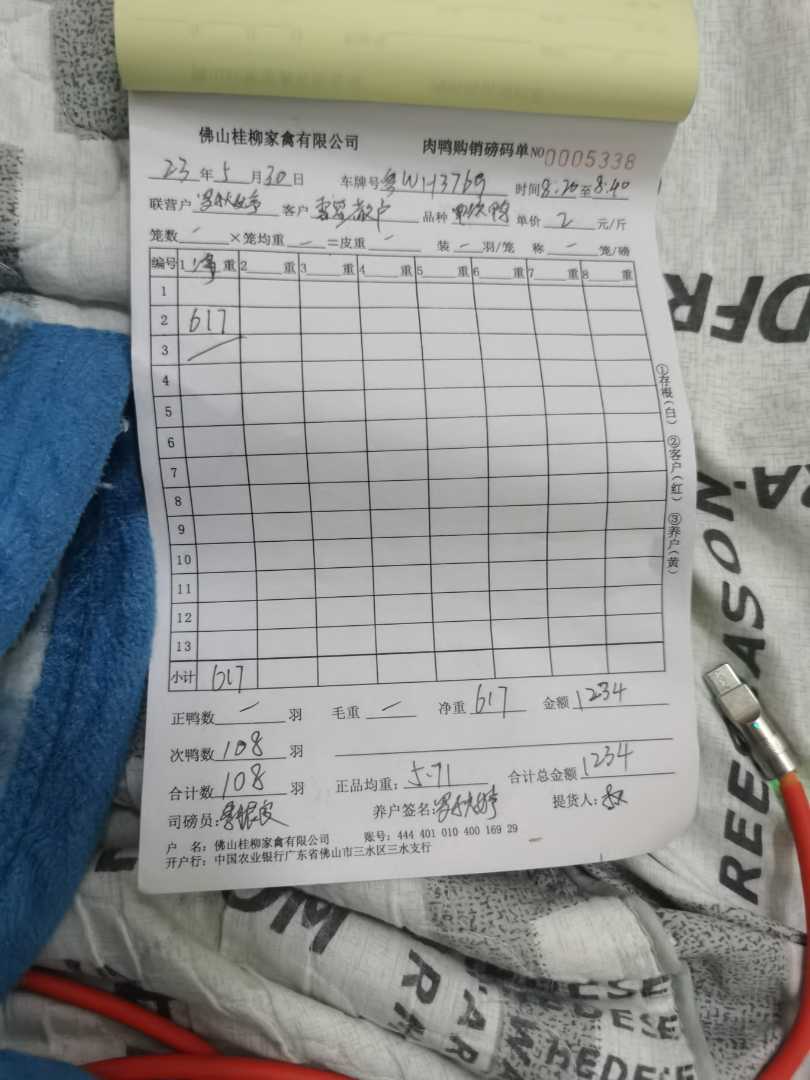 佛山桂柳家禽有限公司 肉鸭购销磅码单 NO 0005338
23 年 5 月 30 日 车牌号 粤WH3769 时间 8.20 至 8.40
联营户 客户 散户 品种 单价 2 元/斤
笼数 — ×笼均重 — =皮重 — 装 — 羽/笼 称 — 笼/磅
编号 1 净 重 2 重 3 重 4 重 5 重 6 重 7 重 8 重
1
2 617
3
4
5
6
7
8
9
10
11
12
13
小计 617
①存根(白) ②客户(红) ③养户(黄)
正鸭数 — 羽 毛重 — 净重 617 金额 1234
次鸭数 108 羽
合计数 108 羽 正品均重: 5.71 合计总金额 1234
司磅员: 养户签名: 提货人:
户 名: 佛山桂柳家禽有限公司 账号: 444 401 010 400 169 29
开户行: 中国农业银行广东省佛山市三水区三水支行
REE
REASON